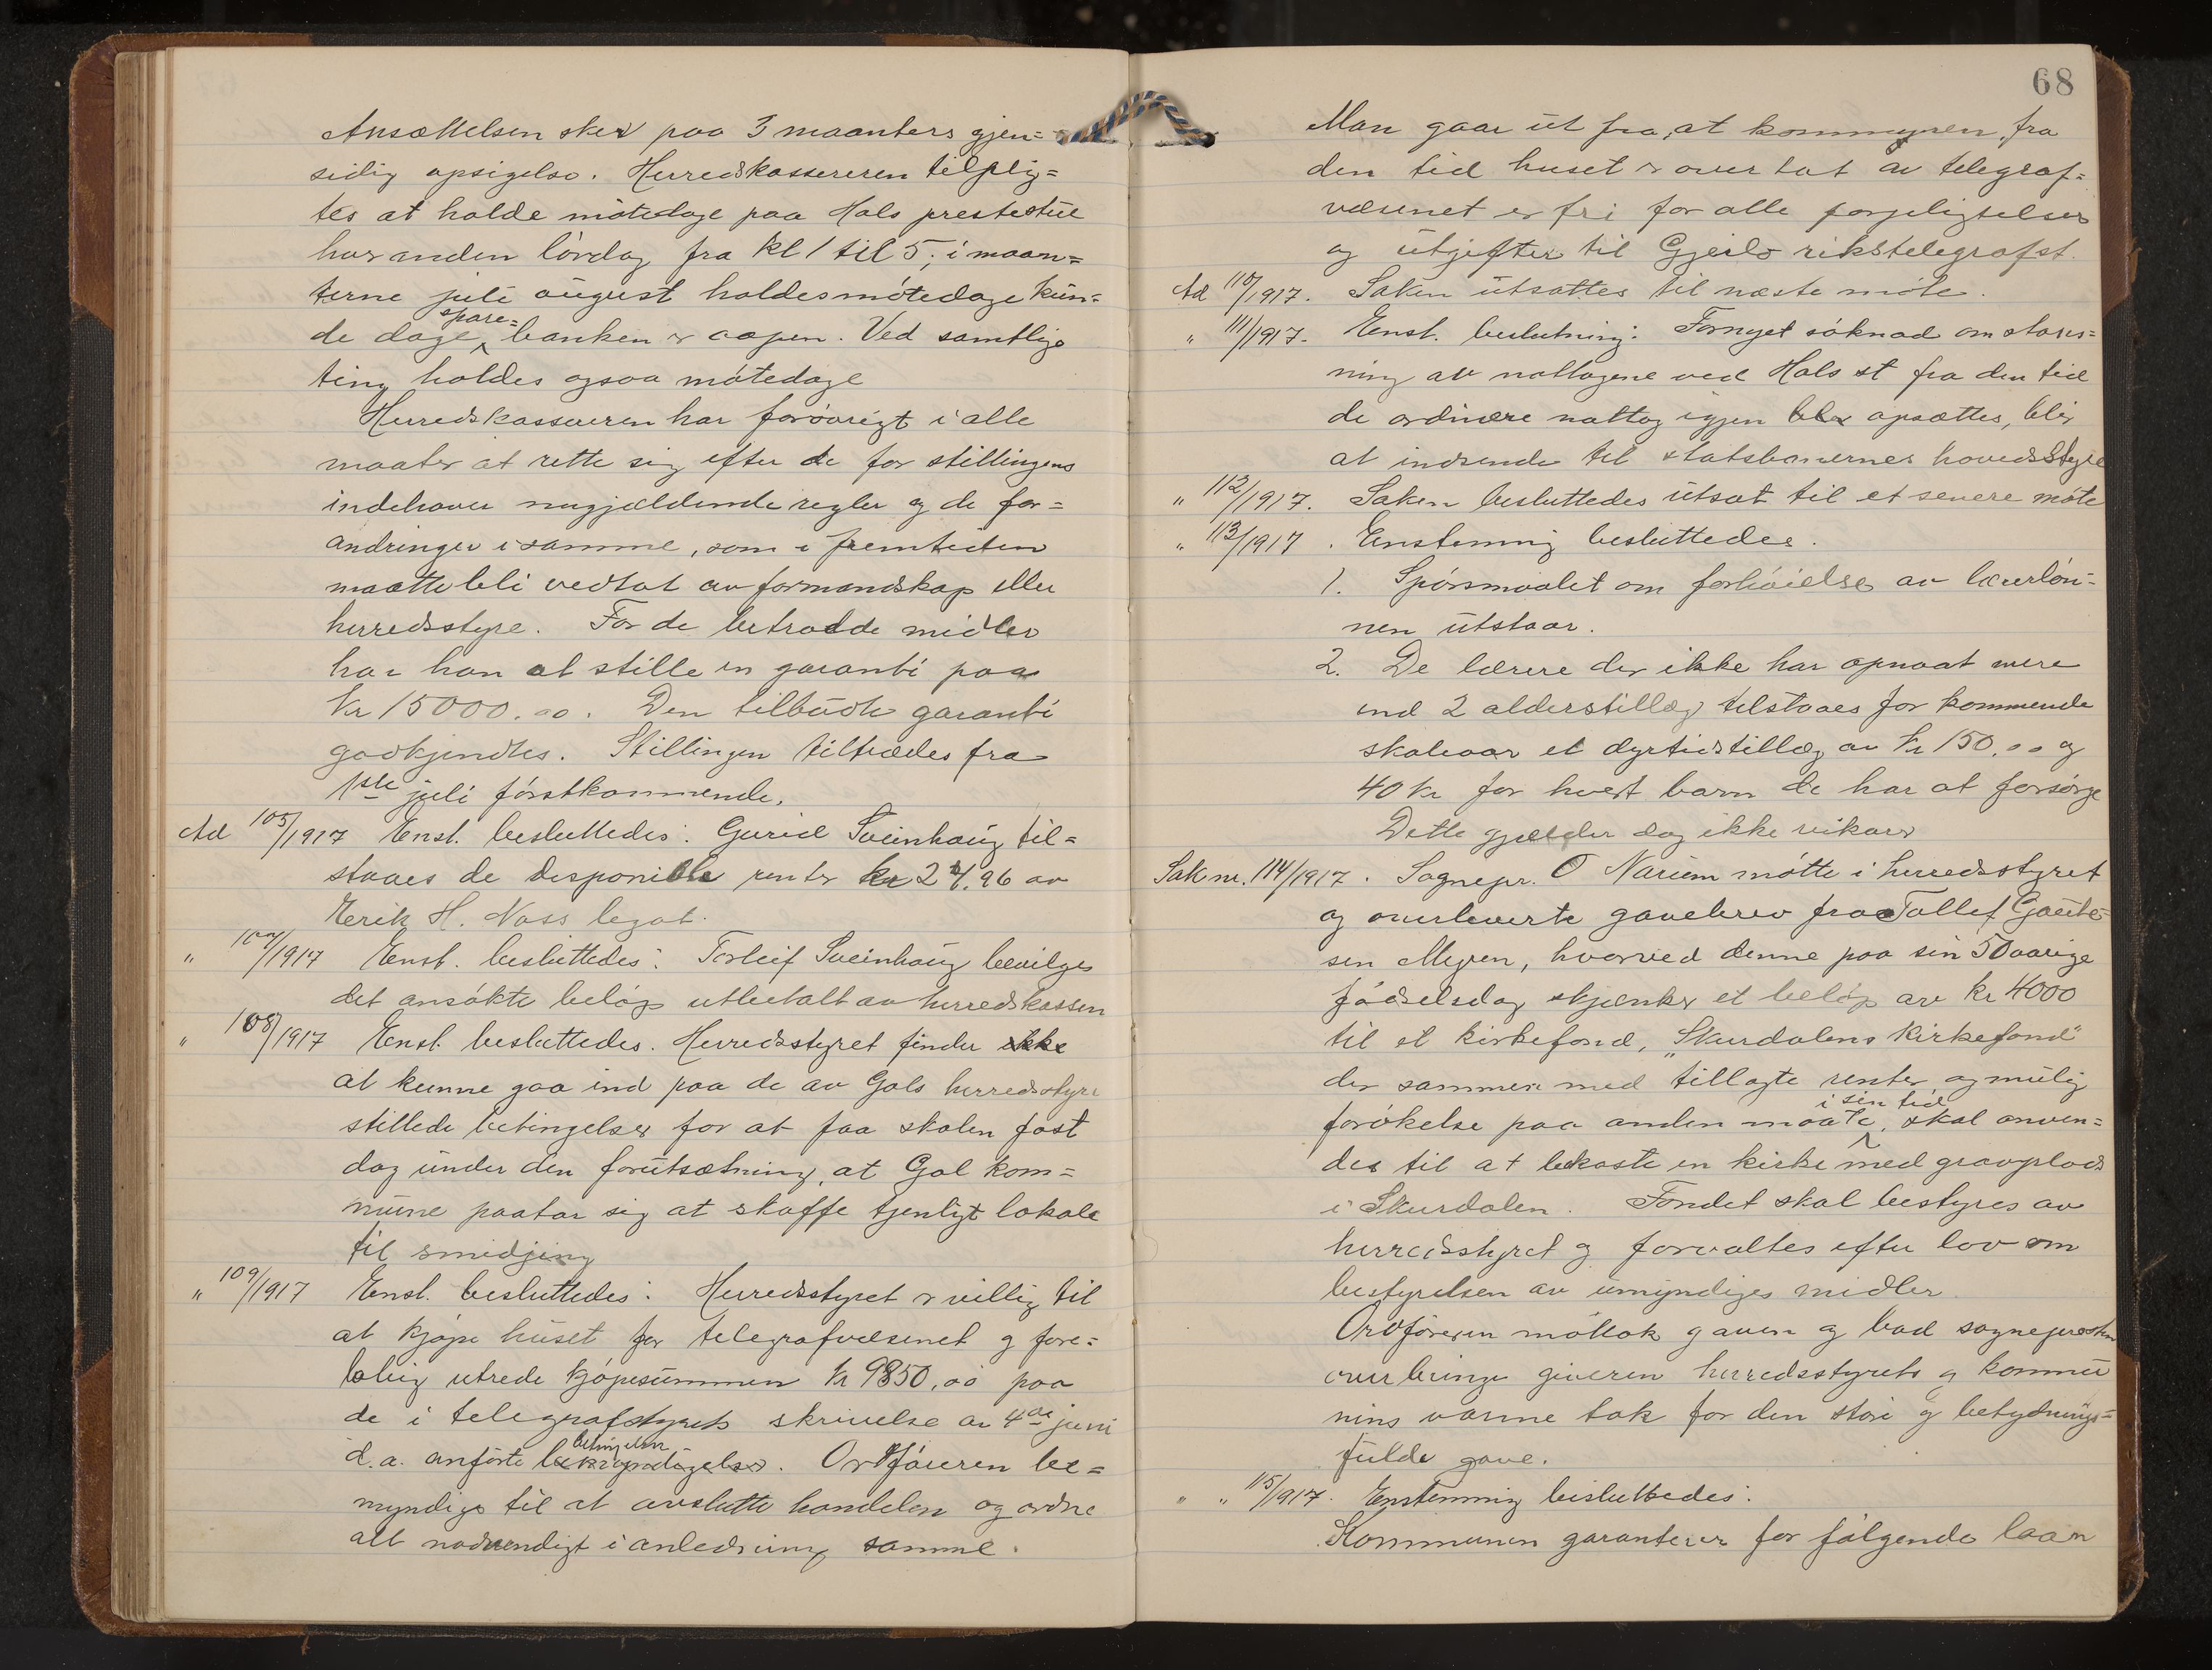 Ansættelsen sker paa 3 maanters gjen=
sidig opsigelse. Herredskassereren tilplig=
tes at holde møtedage paa Hols prestestue
hver anden lørdag fra kl 1 til 5; i maan=
terne juli august holdes møtedage kun
de dage spare=banken er aapen. Ved samtlige
ting holdes ogsaa møtedage
Herredskassereren har forøvrigt i alle
maater at rette sig efter de for stillingens
indehaver nugjældende regler og de for=
andringer i samme, som i fremtiden
maatte bli vedtat av formandskap eller
herredsstyre. For de betrodde midler
har han at stille en garanti paa
kr 15000.00. Den tilbudte garanti
godkjendtes. Stillingen tiltrædes fra
1ste juli førstkommende.
Ad 105/1917 Enst. besluttedes: Gurid Sveinhaug til=
staaes de disponible renter kr 24.96 av
Eerik H. Nass legat.
" 107/1917 Enst. besluttedes: Torleif Sveinhaug bevilges
det ansøkte beløp utbetalt av herredskassen
" 108/1917 Enst. besluttedes. Herredsstyret finder ikke
at kunne gaa ind paa de av Gols herredsstyre
stillede betingelser for at faa skolen fast
dog under den forutsætning, at Gol kom=
mune paatar sig at skaffe tjenligt lokale
til smidjing
" 109/1917 Enst. besluttedes: Herredsstyret er villig til
at kjøpe huset for telegrafvæsenet og fore=
løbig utrede kjøpesummen kr 9850,00 paa
de i telegrafstyrets skrivelse av 4de juni
d.a. anførte betingelser. Ordføreren be=
myndiges til at avslutte handelen og ordne
alt nødvendigt i anledning samme.
68
Man gaar ut fra, at kommunen, fra
den tid huset er overtat av telegraf=
væsenet er fri for alle forpligtelser
og utgifter til Gjeilo rikstelegrafst.
Ad 110/1917. Saken utsattes til næste møte.
" 111/1917. Enst. beslutning: Fornyet søknad om stans=
ning av nattogene ved Hols st fra den tid
de ordinære nattog igjen blir opsættes, blir
at indsende til statsbanernes hovedstyre
" 112/1917. Saken besluttedes utsat til et senere møte
" 113/1917. Enstemmig besluttedes.
1. Spørsmaalet om forhøielse av lærerløn=
nen utstaar.
2. De lærere der ikke har opnaat mere
end 2 alderstillæg tilstaaes for kommende
skoleaar et dyrtidstillæg av kr 150.00 og
40 kr for hvert barn de har at forsørge
Dette gjælder dog ikke vikarer
Sak nr. 114/1917. Sognepr. O Narum møtte i herredsstyret
og overleverte gavebrev fra Tollef Gaute=
sen Myren, hvorved denne paa sin 50 aarige
fødselsdag skjænker et beløp av kr 4000
til et kirkefond, "Skurdalens kirkefond"
der sammen med tillagte renter, og mulig
forøkelse paa anden maate, i sin tid skal anven=
des til at bekoste en kirke med gravplads
i Skurdalen. Fondet skal bestyres av
herredsstyret og forvaltes efter lov om
bestyrelsen av umyndiges midler.
Ordføreren mottok gaven og bad sognepresten
overbringe giveren herredsstyrets og kommu
nens varme tak for den store og betydnings=
fulde gave.
" " 115/1917. Enstemmig besluttedes:
Kommunen garanterer for følgende laan